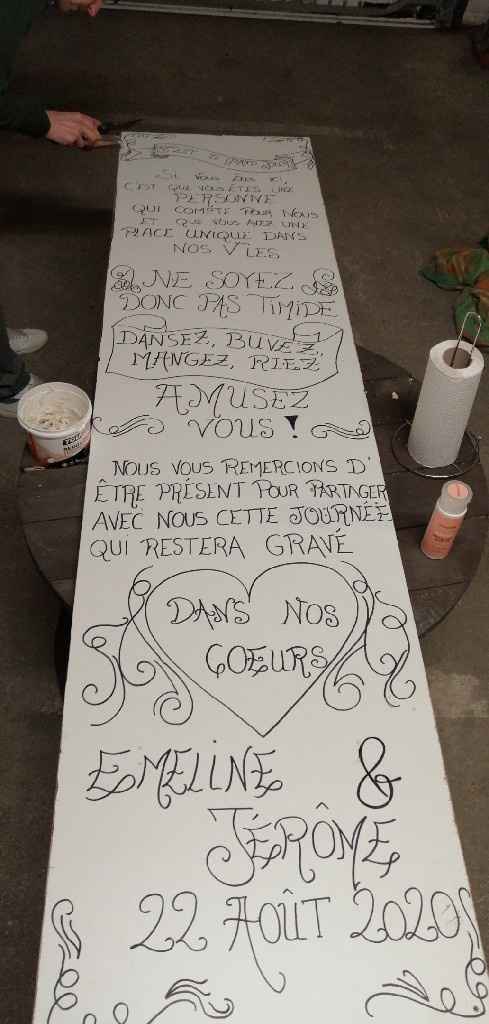 C'EST LE GRAND JOUR
SI VOUS ÊTES ICI,
C'EST QUE VOUS ÊTES UNE
PERSONNE
QUI COMPTE POUR NOUS
ET QUE VOUS AVEZ UNE
PLACE UNIQUE DANS
NOS VIES
NE SOYEZ
DONC PAS TIMIDE
DANSEZ, BUVEZ,
MANGEZ, RIEZ
AMUSEZ
VOUS !
NOUS VOUS REMERCIONS D'
ÊTRE PRÉSENT POUR PARTAGER
AVEC NOUS CETTE JOURNÉE
QUI RESTERA GRAVÉ
DANS NOS
COEURS
EMELINE &
JÉRÔME
22 AOÛT 2020